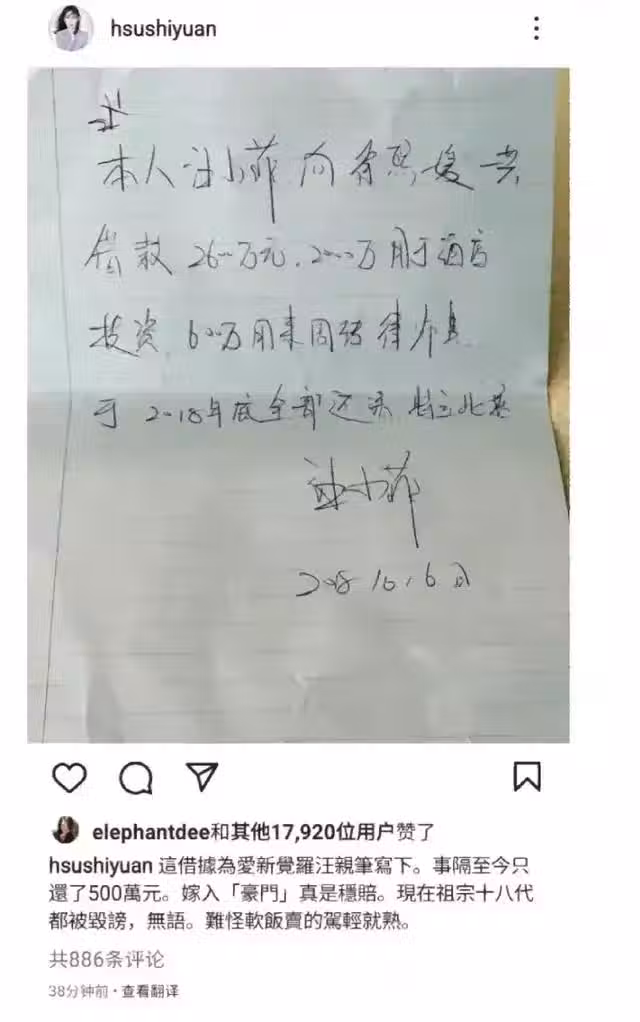 hsushiyuan
本人汪小菲向徐熙媛共
借款2600万元.2000万用于酒店
投资 600万用来周转
于2018年底全部还清 特立此
汪小菲
2018.10.6日
elephantdee和其他17,920位用户赞了
hsushiyuan 這借據為愛新覺羅汪親筆寫下。事隔至今只
還了500萬元。嫁入「豪門」真是穩賠。現在祖宗十八代
都被毀謗，無語。難怪軟飯賣的駕輕就熟。
共886条评论
38分钟前·查看翻译